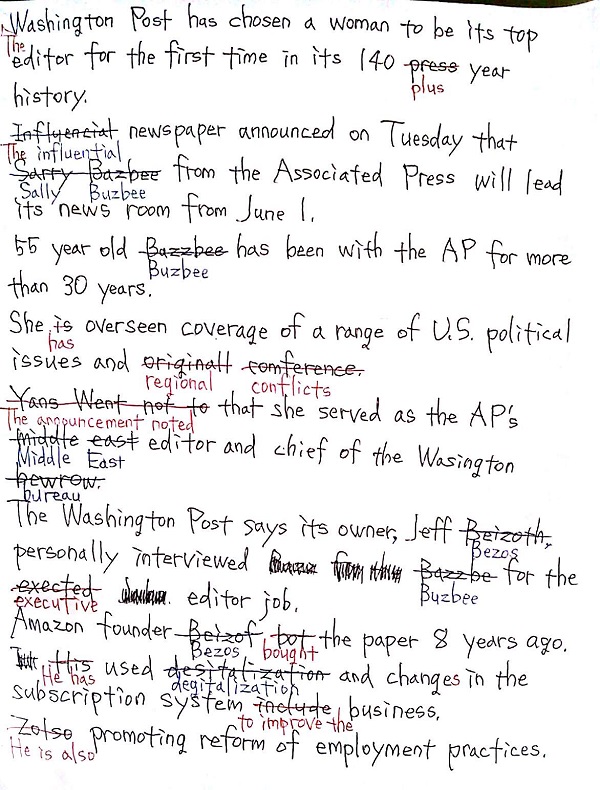 Washington Post has chosen a woman to be its top
The
editor for the first time in its 140 press year
plus
history.
Influencial newspaper announced on Tuesday that
The influential
Sarry Bazbee from the Associated Press will lead
Sally Buzbee
its news room from June 1.
55 year old Bazzbee has been with the AP for more
Buzbee
than 30 years.
She is overseen coverage of a range of U.S. political
has
issues and originall comference.
regional conflicts
Yans Went not to that she served as the AP's
The announcement noted
middle east editor and chief of the Wasington
Middle East
hewrow.
bureau
The Washington Post says its owner, Jeff Beizoth,
Bezos
personally interviewed Bazzbe for the
Buzbee
exected editor job.
executive
Amazon founder Beizof bot the paper 8 years ago.
Bezos bought
His used desitalization and changes in the
He has degitalization
subscription system include business.
to improve the
Zolso promoting reform of employment practices.
He is also